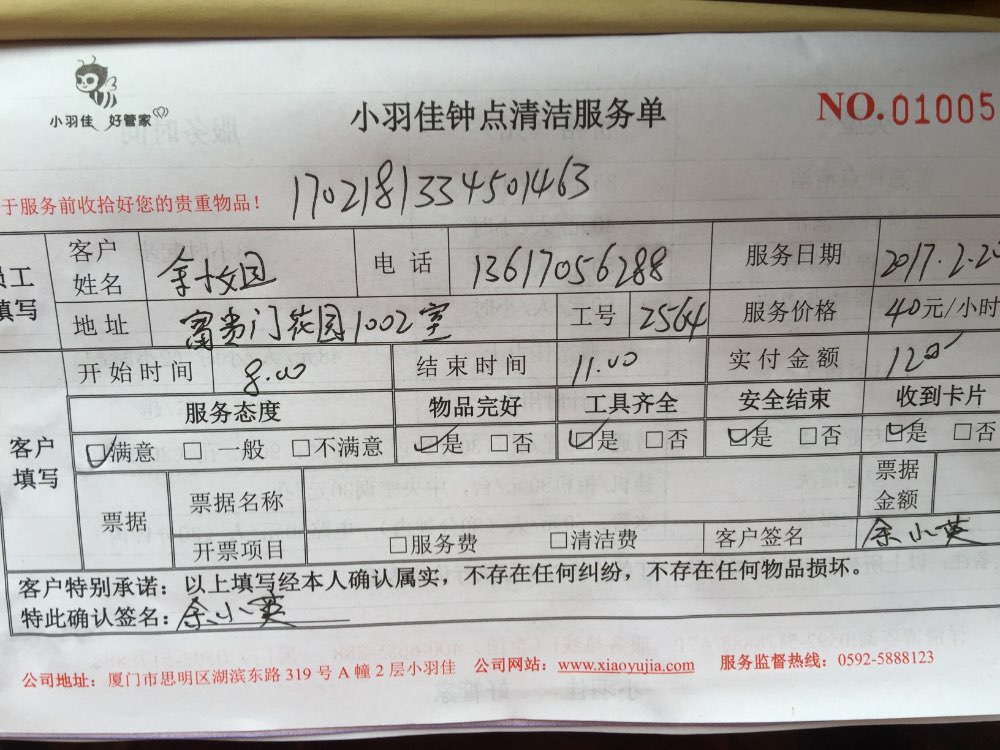 小羽佳 好管家
小羽佳钟点清洁服务单
NO.01005
于服务前收拾好您的贵重物品！
1702181334501463
员工填写
客户姓名
电话 13617056288
服务日期 2017.2.20
地址 富贵门花园1002室
工号 2564
服务价格 40元/小时
开始时间 8.00
结束时间 11.00
实付金额 120
客户填写
服务态度 物品完好 工具齐全 安全结束 收到卡片
☑满意 □一般 □不满意 ☑是 □否 ☑是 □否 ☑是 □否 ☑是 □否
票据 票据名称 票据金额
开票项目 □服务费 □清洁费 客户签名 余小英
客户特别承诺：以上填写经本人确认属实，不存在任何纠纷，不存在任何物品损坏。
特此确认签名：余小英
公司地址：厦门市思明区湖滨东路 319 号 A 幢 2 层小羽佳 公司网站：www.xiaoyujia.com 服务监督热线：0592-5888123